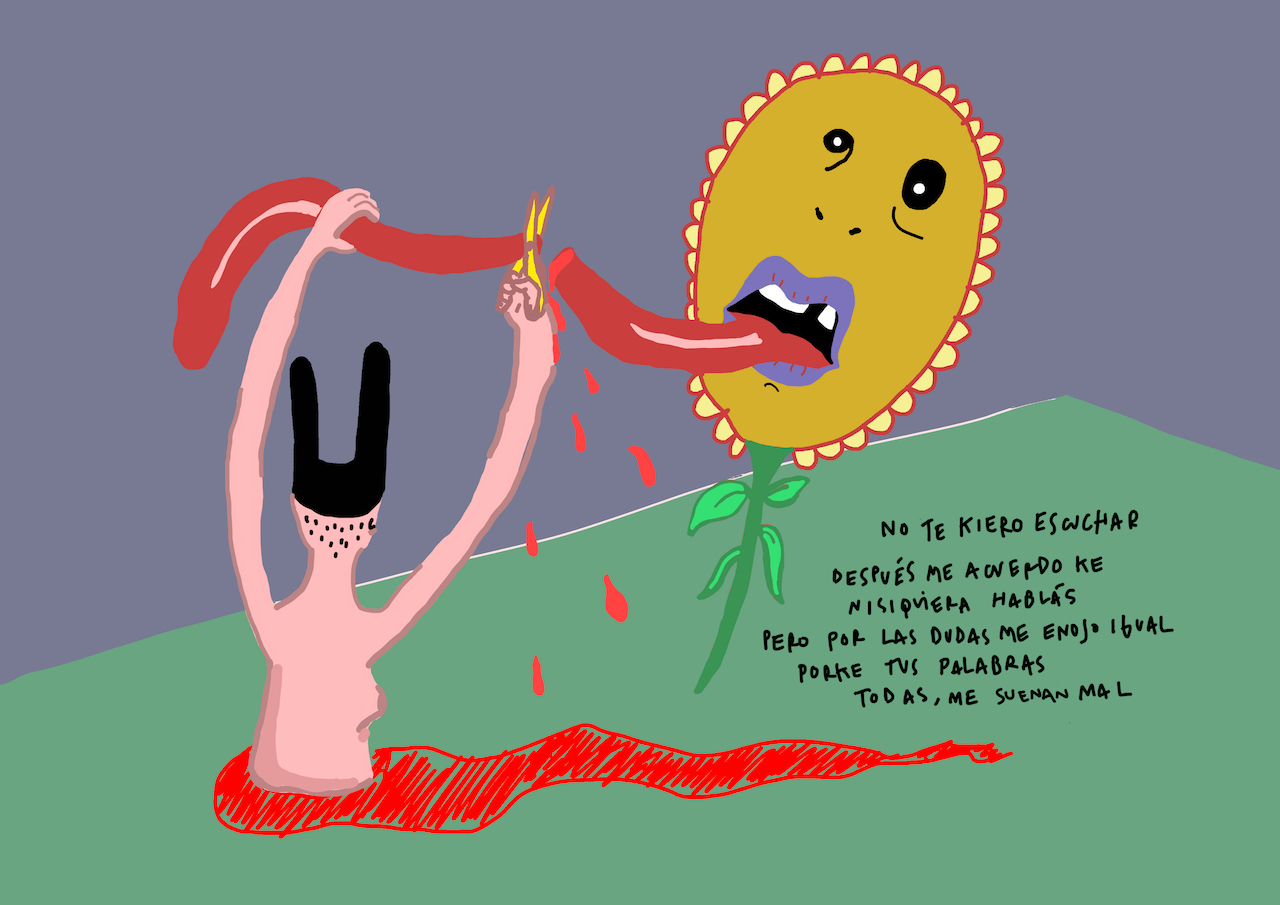 NO TE KIERO ESCUCHAR
DESPUÉS ME ACUERDO KE
NISIQUIERA HABLÁS
PERO POR LAS DUDAS ME ENOJO IGUAL
PORKE TUS PALABRAS
TODAS, ME SUENAN MAL